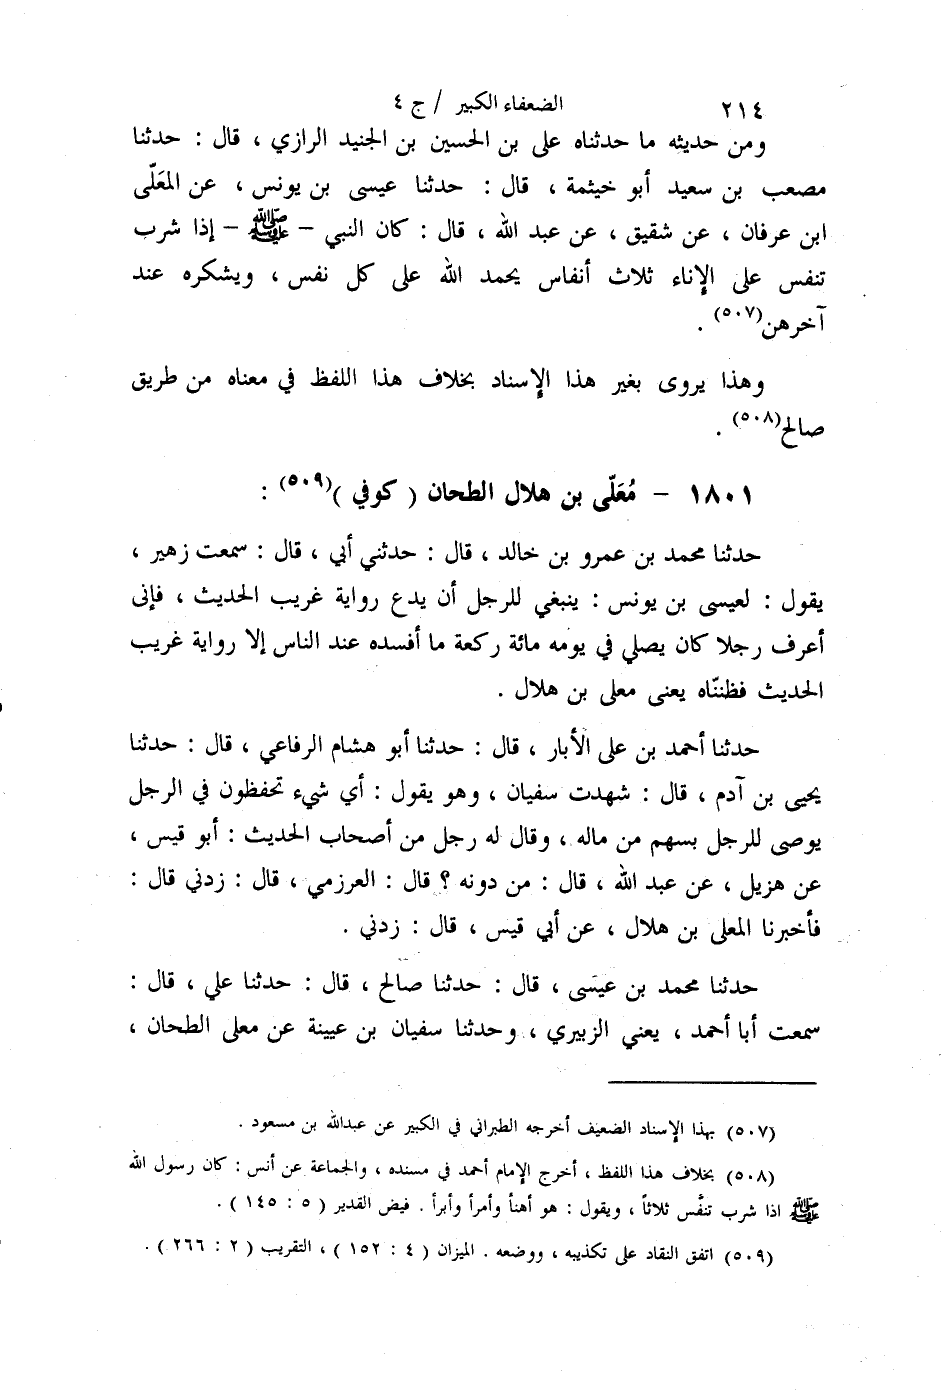 ٢١٤ الضعفاء الكبير / ج ٤
ومن حديثه ما حدثناه على بن الحسين بن الجنيد الرازي ، قال : حدثنا
مصعب بن سعيد أبو خيثمة ، قال : حدثنا عيسى بن يونس ، عن المعَلّى
ابن عرفان ، عن شقيق ، عن عبد الله ، قال : كان النبي - ﷺ - إذا شرب
تنفس على الإناء ثلاث أنفاس يحمد الله على كل نفس ، ويشكره عند
آخرهن(٥٠٧) .
وهذا يروى بغير هذا الإسناد بخلاف هذا اللفظ في معناه من طريق
صالح(٥٠٨) .
١٨٠١ - مُعَلّى بن هلال الطحان ( كوفي )(٥٠٩) :
حدثنا محمد بن عمرو بن خالد ، قال : حدثني أبي ، قال : سمعت زهير ،
يقول : لعيسى بن يونس : ينبغي للرجل أن يدع رواية غريب الحديث ، فإنى
أعرف رجلا كان يصلي في يومه مائة ركعة ما أفسده عند الناس إلا رواية غريب
الحديث فظننّاه يعنى معلى بن هلال .
حدثنا أحمد بن على الأبار ، قال : حدثنا أبو هشام الرفاعي ، قال : حدثنا
يحيى بن آدم ، قال : شهدت سفيان ، وهو يقول : أي شيء تحفظون في الرجل
يوصى للرجل بسهم من ماله ، وقال له رجل من أصحاب الحديث : أبو قيس ،
عن هزيل ، عن عبد الله ، قال : من دونه ؟ قال : العرزمي ، قال : زدني قال :
فأخبرنا المعلى بن هلال ، عن أبي قيس ، قال : زدني .
حدثنا محمد بن عيسَى ، قال : حدثنا صالح ، قال : حدثنا علي ، قال :
سمعت أبا أحمد ، يعني الزبيري ، وحدثنا سفيان بن عيينة عن معلى الطحان ،
(٥٠٧) بهذا الإسناد الضعيف أخرجه الطبراني في الكبير عن عبدالله بن مسعود .
(٥٠٨) بخلاف هذا اللفظ ، أخرج الإمام أحمد في مسنده ، والجماعة عن أنس : كان رسول الله
ﷺ اذا شرب تنفَّس ثلاثاً ، ويقول : هو أهنأ وأمرأ وأبرأ . فيض القدير ( ٥ : ١٤٥ ) .
(٥٠٩) اتفق النقاد على تكذيبه ، ووضعه . الميزان ( ٤ : ١٥٢ ) ، التقريب ( ٢ : ٢٦٦ ) .